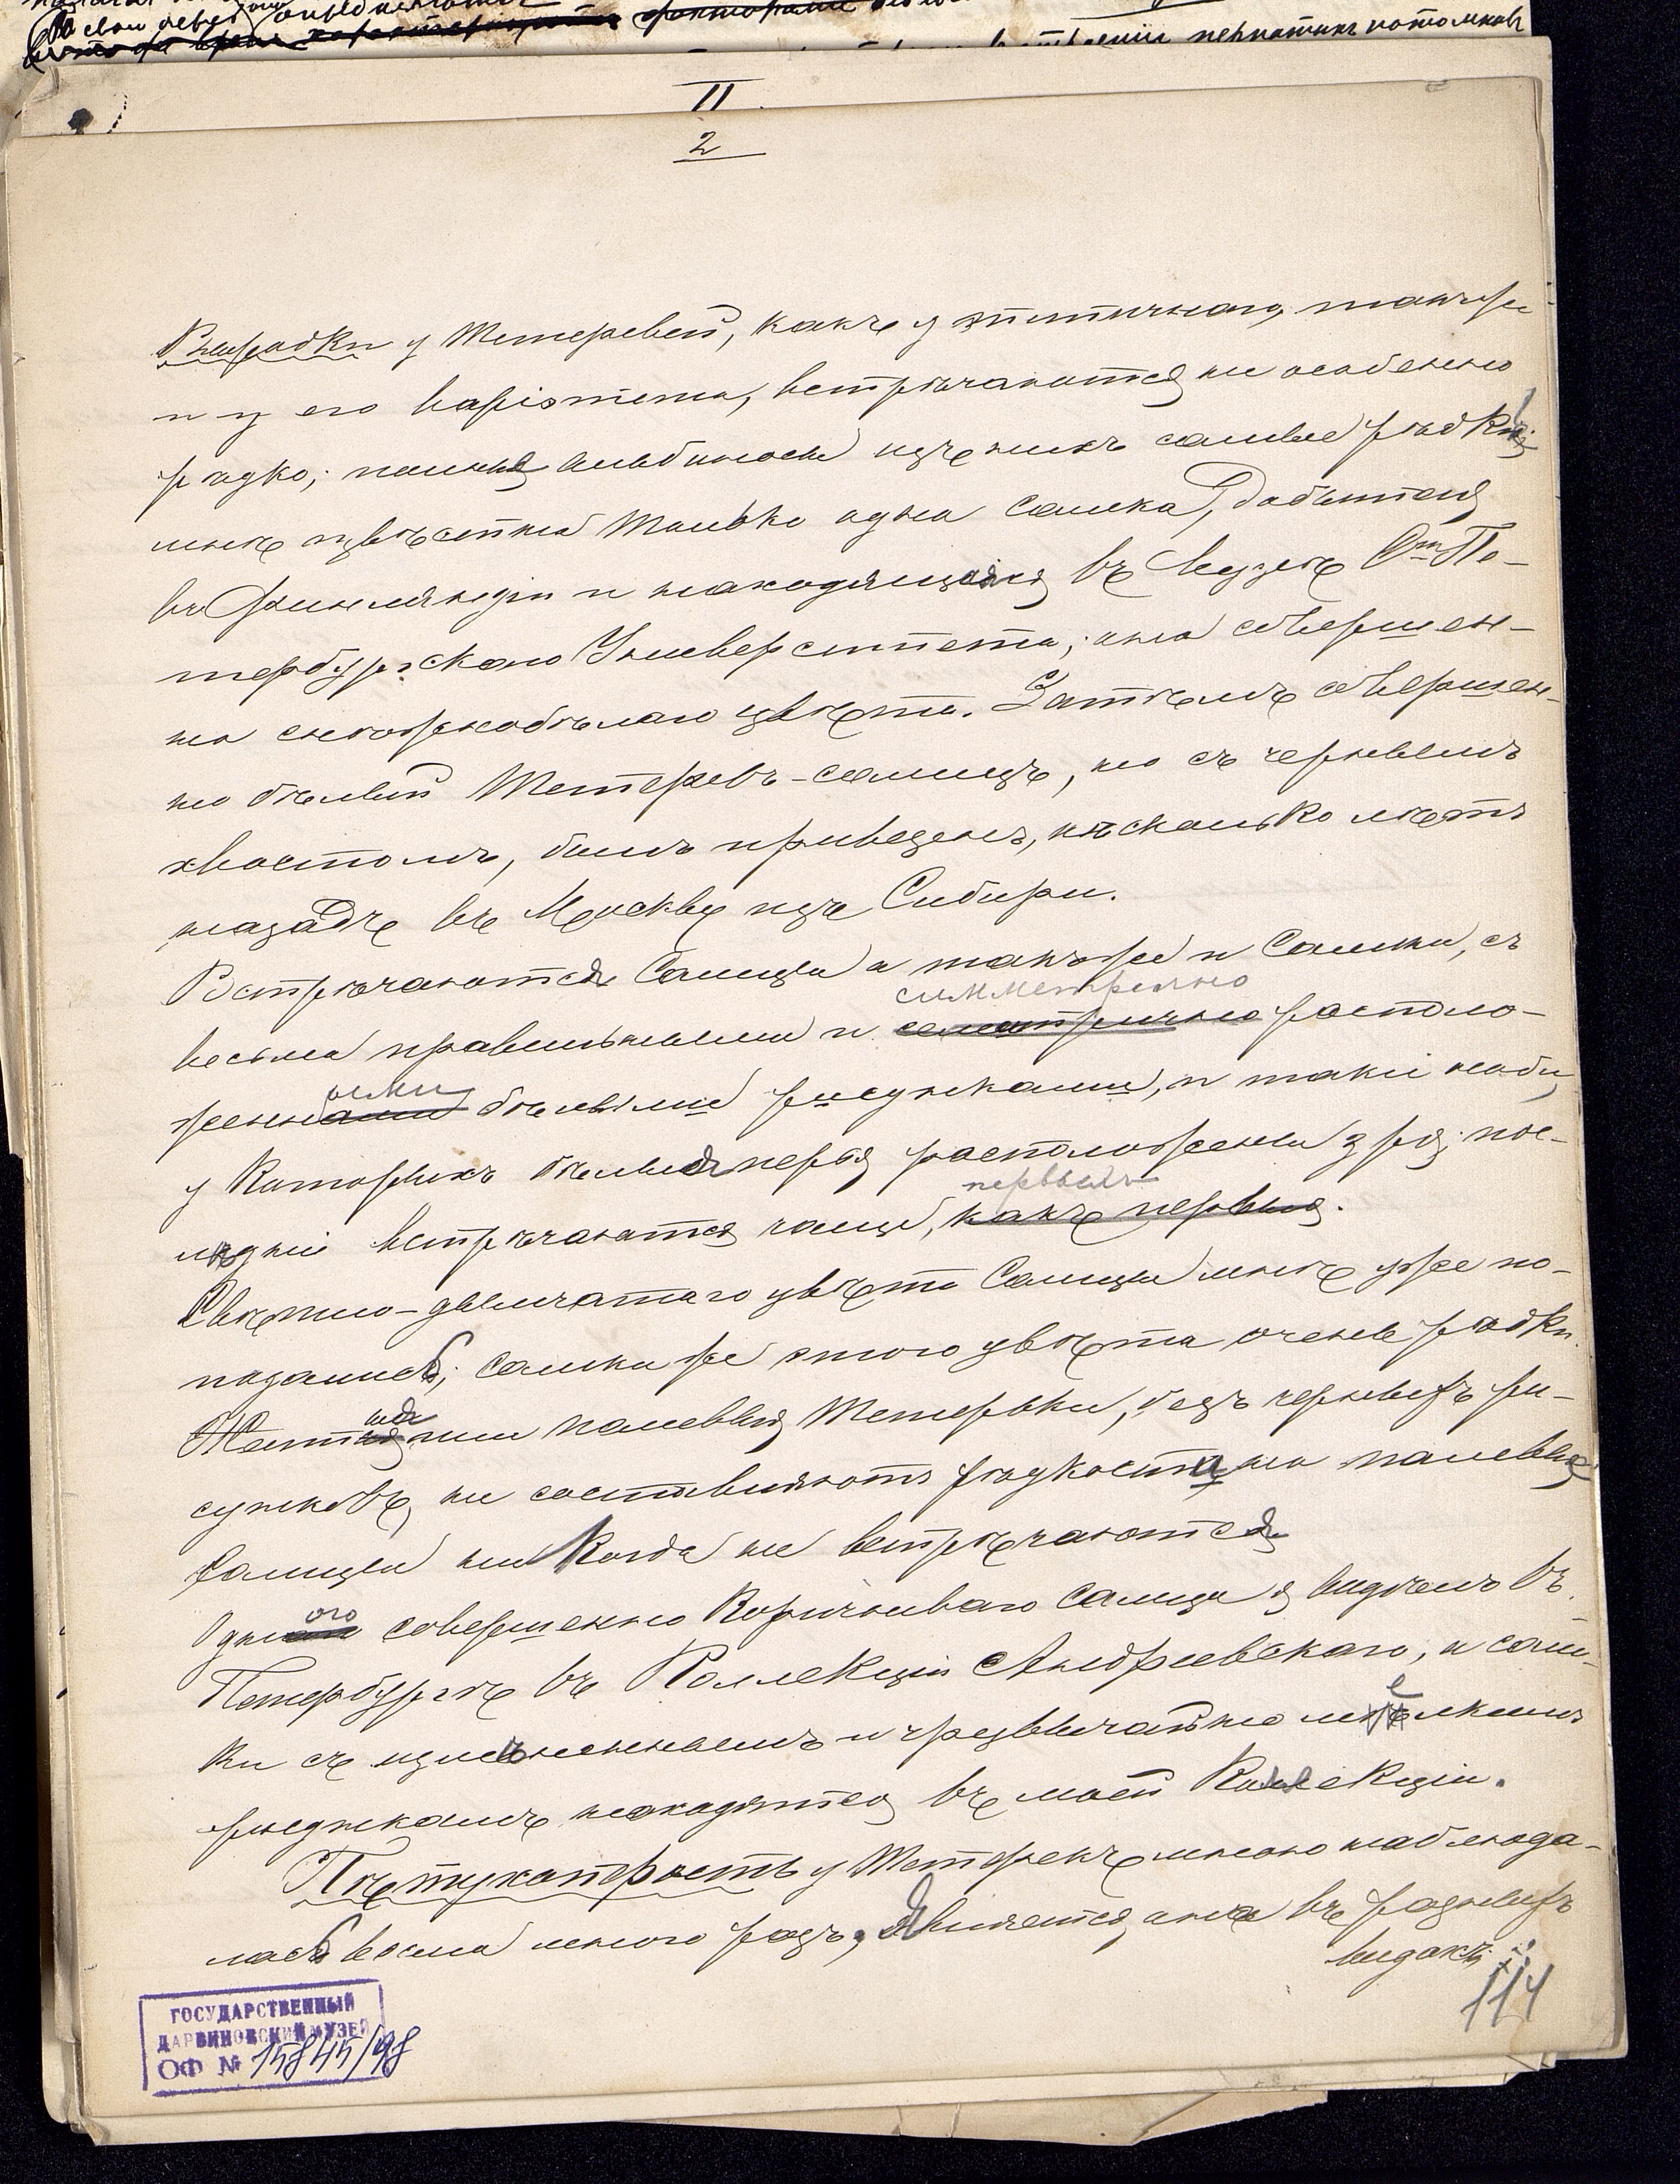 II
2
Выродки у Тетеревей, какъ у типичнаго, такъ же
и у его варіэтета, встрѣчаются не особенно
рѣдко; полный альбиносы изъ нихъ самые рѣдкіе;
мнѣ извѣстна только одна самка, добытая
въ Финляндіи и находящаяся въ Музеѣ С.тъ Пе-
тербургскаго Университета; она совершен-
но снѣжнобѣлаго цвѣта. Затѣмъ совершен-
но бѣлый Тетеревъ-самецъ, но съ чернымъ
хвостомъ, былъ привезенъ, нѣсколько лѣтъ
назадъ въ Москву изъ Сибири.
Встрѣчаются Самцы а такъ же и Самки, съ
симметрично
весьма правильными и располо-
ыми
женн бѣлыми рисунками, и такіе особи,
у которыхъ бѣлыя перья расположены зря; пос-
первыхъ
лѣдніе встрѣчаются чаще, какъ первыя.
Свѣтло-дымчатаго цвѣта Самцы мнѣ уже по-
падались; самки же этого цвѣта очень рѣдки.
Желтыя или палевыя Тетерьки, безъ черныхъ ри-
сунковъ, не составляютъ рѣдкости, но палевые
Самцы никогда не встрѣчаются
ого
Одн совершенно Коричневаго Самца я видѣлъ въ
Петербургѣ въ Коллекціи Андреевскаго, и сам-
ки съ измѣненнымъ и чрезвычайно мелкимъ
рисункамъ находятся въ моей Коллекціи.
Пѣтухоперость у Тетерекъ мною наблюда-
лась весьма много разъ, Является она въ разныхъ
видахъ:
114
ГОСУДАРСТВЕННЫЙ
ДАРВИНОВСКИЙ МУЗЕЙ
ОФ № 15845/98